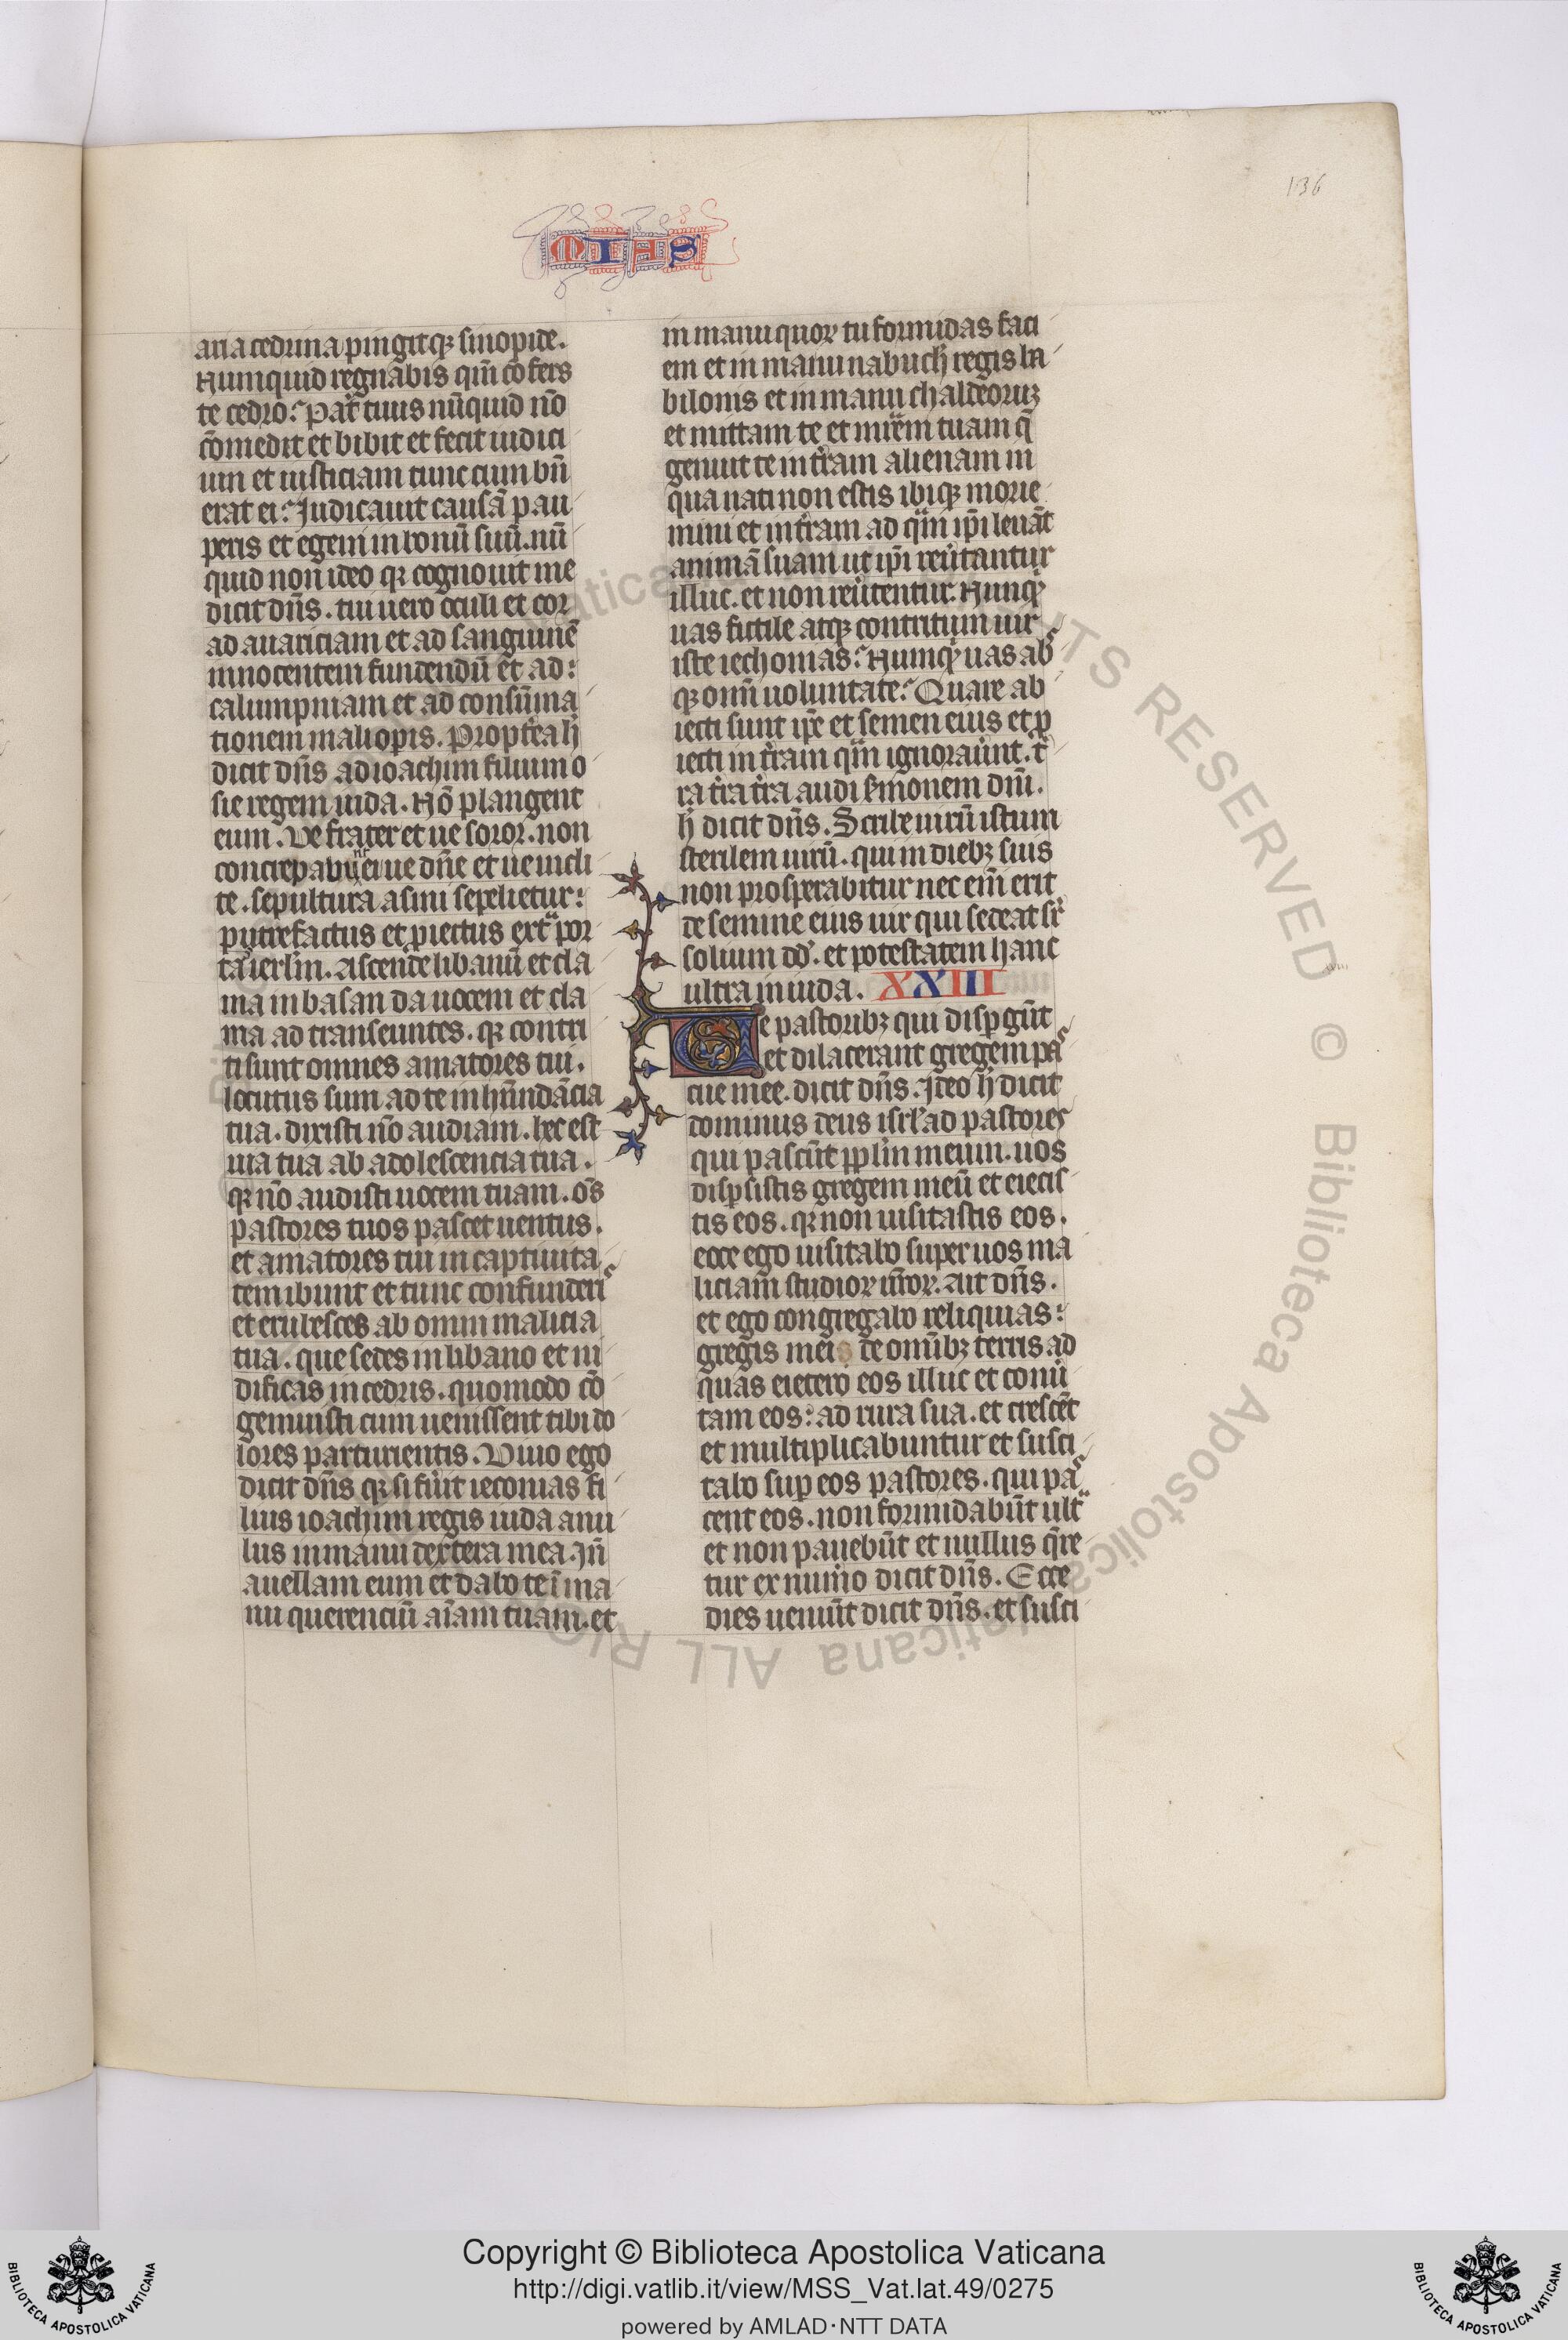 136
MIAS
aria cedrina pingitqꝫ sinopide.
Numquid regnabis qm̄ cōfers
te cedro? Pat̾ tuus nūquid nō
cōmedit et bibit et fecit iudici
um et iusticiam tunc cum bn̄
erat ei? Judicauit causā pau
peris et egeni in bonū suū. nū
quid non ideo qꝛ cognouit me
dicit dn̄s. tui uero oculi et cor
ad auariciam et ad sanguinē
innocentem fundendū et ad
calumpniam et ad consūma
tionem mali oꝑis. Propt̾ea h̄
dicit dn̄s ad ioachim filium io
sie regem iuda. Nō plangent
eum. Ve frater et ue soror. non
concrepabunt ei ue dn̄e et ue incli
te. sepultura asini sepelietur
putrefactus et ꝓiectus ext̾ por
tas ierl̄m. Ascende libanū et cla
ma in basan da uocem et cla
ma ad transeuntes. qꝛ contri
ti sunt omnes amatores tui.
locutus sum ad te in hūndācia
tua. dixisti nō audiam. hec est
uia tua ab adolescencia tua.
qꝛ nō audisti uocem tuam. oēs
pastores tuos pascet uentus.
et amatores tui in captiuita
tem ibunt et tunc confunderis
et erubesces ab omni malicia
tua. que sedes in libano et ni
dificas in cedris. quomodo cō
gemuisti cum uenissent tibi do
lores parturientis. Viuo ego
dicit dn̄s qꝛ si fūit ieconias fi
lius ioachim regis iuda anu
lus in manu dextera mea. Jn̄
auellam eum et dabo te ī ma
nu querenciū aīam tuam. et
in manu quoꝝ tu formidas faci
em et in manu nabuch̄ regis ba
bilonis et in manu chaldeoruꝫ
et mittam te et mr̄em tuam q̄
genuit te in t̾ram alienam in
qua nati non estis ibiqꝫ morie
mini et in t̾ram ad qͣm ip̄i leuāt
animā suam ut ip̄i reūtantur
illuc. et non reūtentur. Nunqͥ
uas fictile atqꝫ contritum uir
iste iechonias? Numqͥ uas abs
qꝫ omī uoluntate? Quare ab
iecti sunt ip̄e et semen eius et ꝓ
iecti in t̾ram qͣm ignorauūt. t̾
ra t̾ra t̾ra audi s̾monem dn̄i.
h̄ dicit dn̄s. Scribe uirū istum
sterilem uirū. qui in diebꝫ suis
non prosperabitur nec enī erit
de semine eius uir qui sedeat sr̄
solium dd̾. et potestatem hanc
ultra in iuda. XXIII
Ve pastoribꝫ qui disꝑgūt
et dilacerant gregem pas
cue mee. dicit dn̄s. Jdeo h̄ dicit
dominus deus isrl̾ ad pastores
qui pascūt pp̄lm meum. uos
disꝑsistis gregem meū et eiecis
tis eos. qꝛ non uisitastis eos.
ecce ego uisitabo super uos ma
liciam studioꝝ ur̄oꝝ. Ait dn̄s.
et ego congregabo reliquias
gregis mei de omībꝫ terris ad
quas eiecero eos illuc et conū
tam eos ad rura sua. et crescēt
et multiplicabuntur et susci
tabo suꝑ eos pastores. qui pas
cent eos. non formidabūt ultͣ
et non pauebūt et nullus q̄re
tur ex num̾o dicit dn̄s. Ecce
dies ueniūt dicit dn̄s. et susci
Copyright © Biblioteca Apostolica Vaticana
http://digi.vatlib.it/view/MSS_Vat.lat.49/0275
powered by AMLAD·NTT DATA
BIBLIOTECA APOSTOLICA VATICANA
BIBLIOTECA APOSTOLICA VATICANA